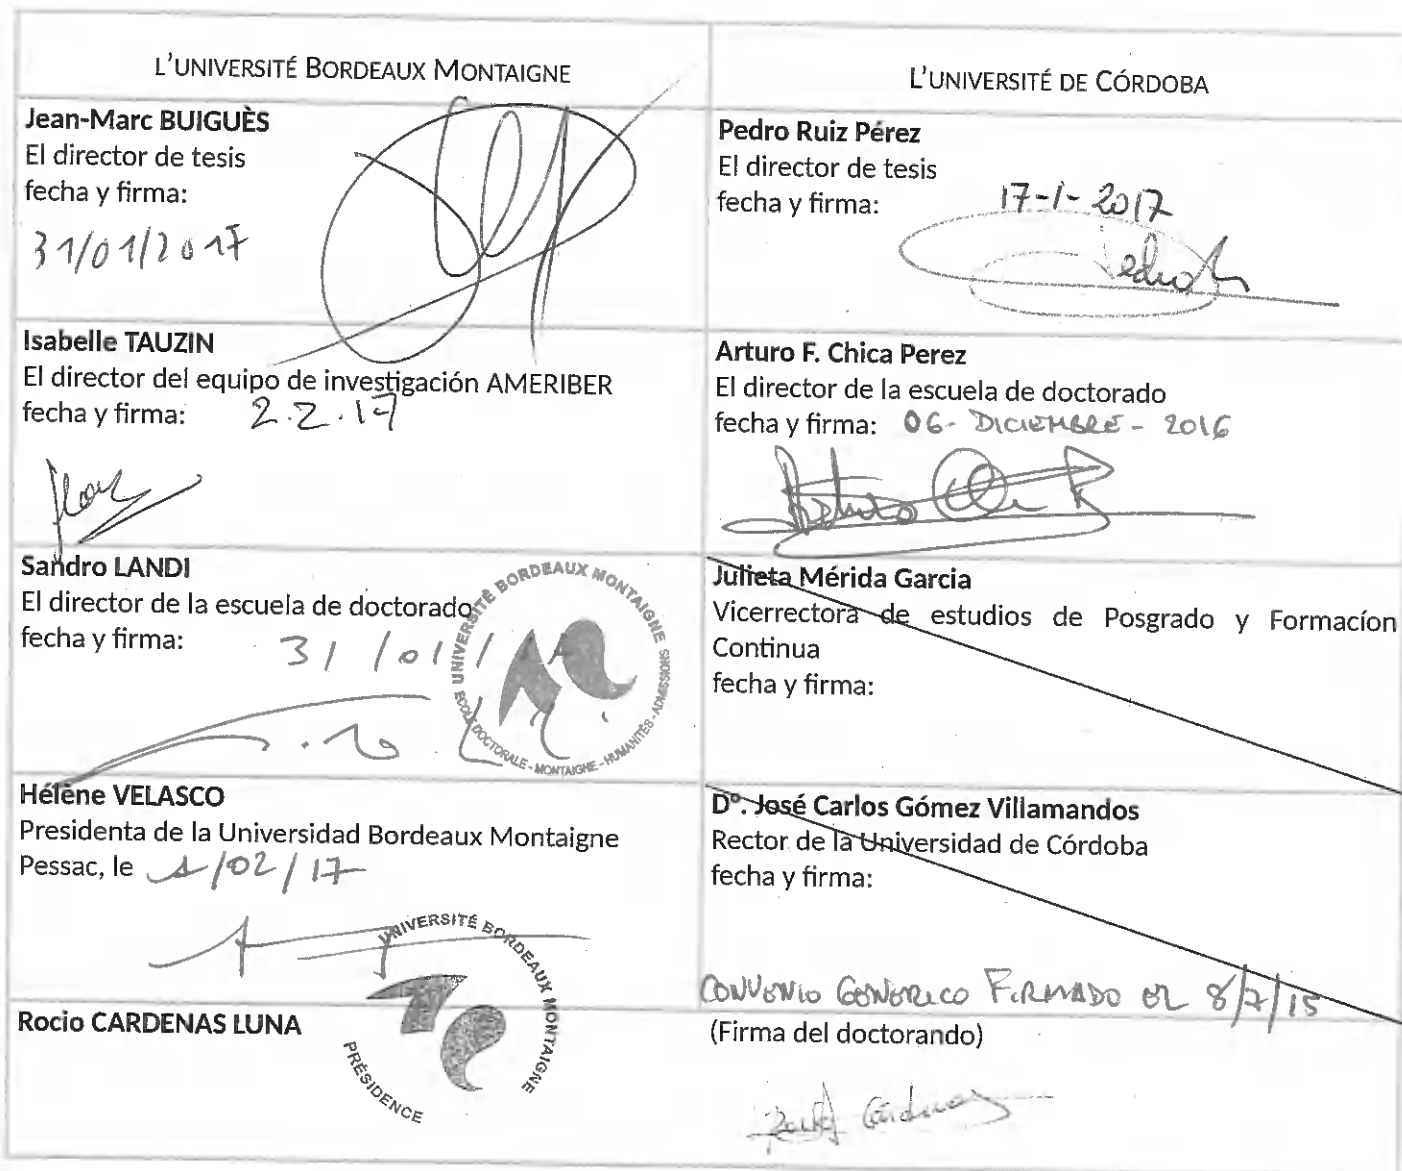 L'UNIVERSITÉ BORDEAUX MONTAIGNE
L'UNIVERSITÉ DE CÓRDOBA
Jean-Marc BUIGUÈS
El director de tesis
fecha y firma:
31/01/2017
Pedro Ruiz Pérez
El director de tesis
fecha y firma: 17-1-2017
Isabelle TAUZIN
El director del equipo de investigación AMERIBER
fecha y firma: 2.2.17
Arturo F. Chica Perez
El director de la escuela de doctorado
fecha y firma: 06-DICIEMBRE-2016
Arturo
Sandro LANDI
El director de la escuela de doctorado
fecha y firma: 31/01/
UNIVERSITÉ BORDEAUX MONTAIGNE
ECOLE DOCTORALE - MONTAIGNE - HUMANITÉS - ADMISSIONS
Julieta Mérida Garcia
Vicerrectora de estudios de Posgrado y Formacíon
Continua
fecha y firma:
Hélène VELASCO
Presidenta de la Universidad Bordeaux Montaigne
Pessac, le 1/02/17
UNIVERSITÉ BORDEAUX MONTAIGNE
PRÉSIDENCE
Dº. José Carlos Gómez Villamandos
Rector de la Universidad de Córdoba
fecha y firma:
CONVENIO GENERICO FIRMADO EL 8/7/15
Rocio CARDENAS LUNA
(Firma del doctorando)
Cárdenas